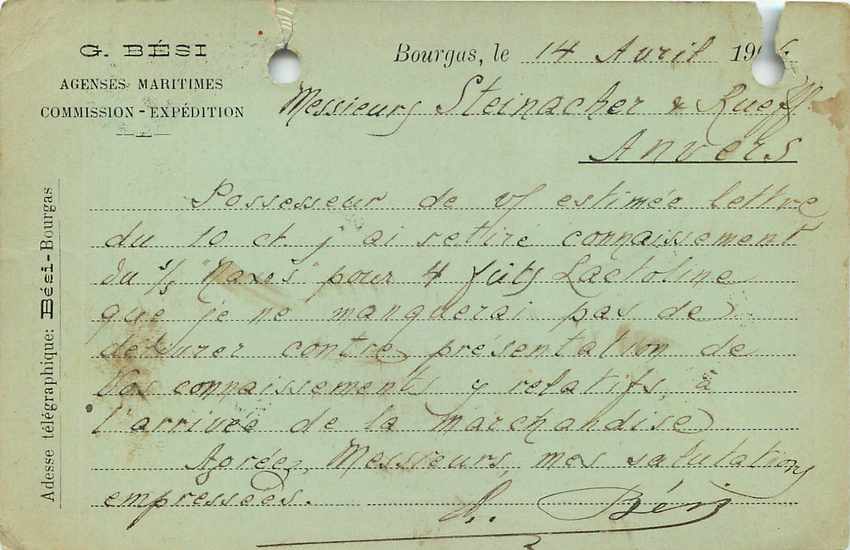 G. BÉSI
AGENSES MARITIMES
COMMISSION - EXPÉDITION
Adesse télégraphique: Bési-Bourgas
Bourgas, le 14 Avril 190
Messieurs Steinacher & Rueff
Anvers
Possesseur de v/ estimée lettre
du 10 ct j'ai retiré connaissement
du s/s "Naxos" pour 4 fûts Lactoline
que je ne manquerai pas de
délivrer contre présentation de
vos connaissements y relatifs, à
l'arrivée de la marchandise
Agréez, Messieurs, mes salutations
empressées.
Bési